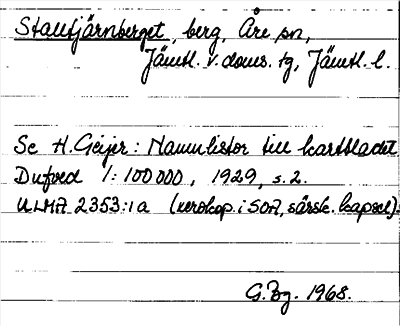 Stalltjärnberget, berg, Åre sn,
Jämtl. v. doms. tg, Jämtl. l.
Se H. Geijer: Namnlistor till kartbladet
Dufved 1:100 000, 1929, s. 2.
ULMA 2353:1a (xerokop. i SOA, särsk. kapsel).
G. Bg. 1968.